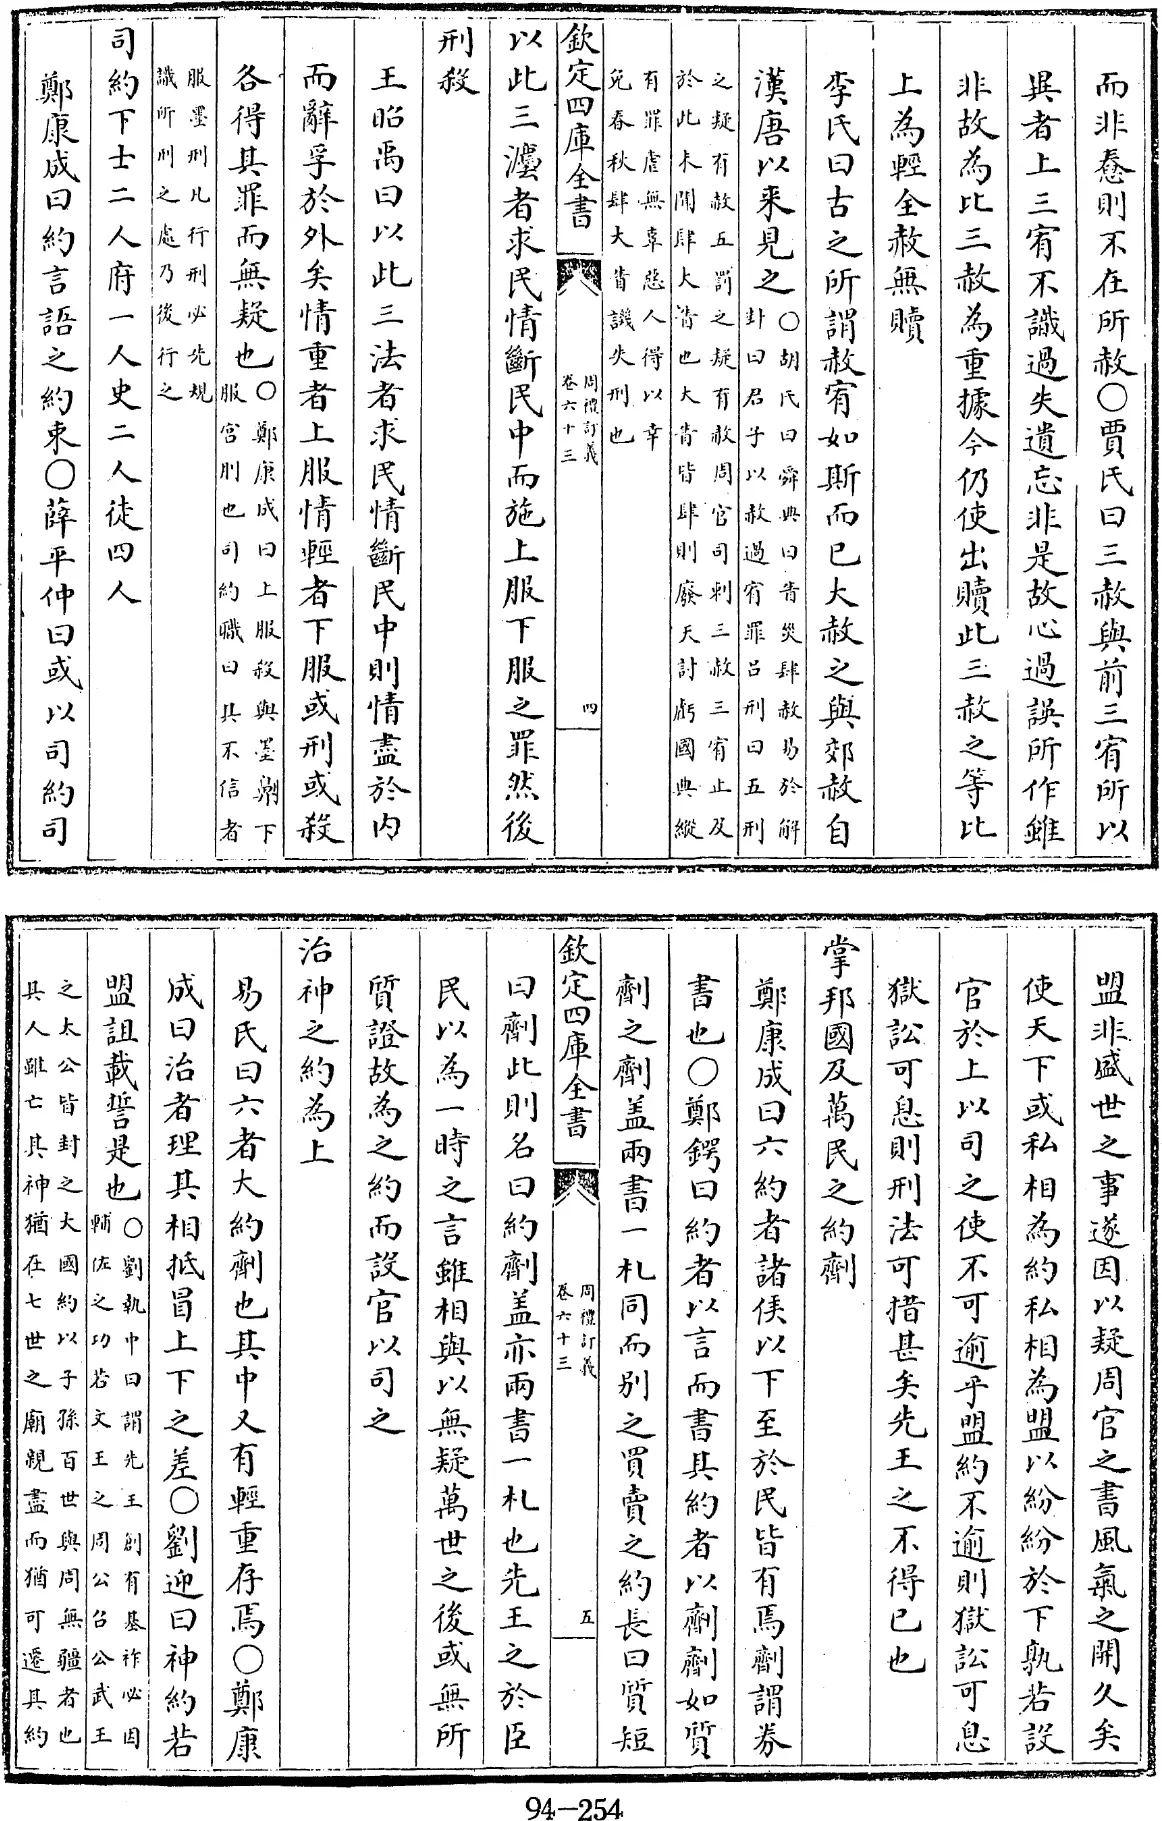 而非憃則不在所赦○賈氏曰三赦與前三宥所以
異者上三宥不識過失遺忘非是故心過誤所作雖
非故為比三赦為重據今仍使出贖此三赦之等比
上為輕全赦無贖
李氏曰古之所謂赦宥如斯而已大赦之與郊赦自
漢唐以来見之○胡氏曰舜典曰眚災肆赦易於解
卦曰君子以赦過宥罪吕刑曰五刑
之疑有赦五罰之疑有赦周官司刺三赦三宥止及
於此未聞肆大眚也大眚皆肆則廢天討虧國典縱
有罪虐無辜惡人得以幸
免春秋肆大眚譏失刑也
欽定四庫全書
周禮訂義
卷六十三
四
以此三灋者求民情斷民中而施上服下服之罪然後
刑殺
王昭禹曰以此三法者求民情斷民中則情盡於内
而辭孚於外矣情重者上服情輕者下服或刑或殺
各得其罪而無疑也○鄭康成曰上服殺與墨劓下
服宫刖也司約職曰其不信者
服墨刑凡行刑必先規
識所刑之處乃後行之
司約下士二人府一人史二人徒四人
鄭康成曰約言語之約束○薛平仲曰或以司約司
盟非盛世之事遂因以疑周官之書風氣之開久矣
使天下或私相為約私相為盟以紛紛於下孰若設
官於上以司之使不可逾乎盟約不逾則獄訟可息
獄訟可息則刑法可措甚矣先王之不得已也
掌邦國及萬民之約劑
鄭康成曰六約者諸侯以下至於民皆有焉劑謂券
書也○鄭鍔曰約者以言而書其約者以劑劑如質
劑之劑盖兩書一札同而别之買賣之約長曰質短
欽定四庫全書
周禮訂義
卷六十三
五
曰劑此則名曰約劑盖亦兩書一札也先王之於臣
民以為一時之言雖相與以無疑萬世之後或無所
質證故為之約而設官以司之
治神之約為上
易氏曰六者大約劑也其中又有輕重存焉○鄭康
成曰治者理其相抵冒上下之差○劉迎曰神約若
盟詛載誓是也○劉執中曰謂先王創有基祚必因
輔佐之功若文王之周公召公武王
之太公皆封之大國約以子孫百世與周無疆者也
其人雖亡其神猶在七世之廟親盡而猶可遷其約